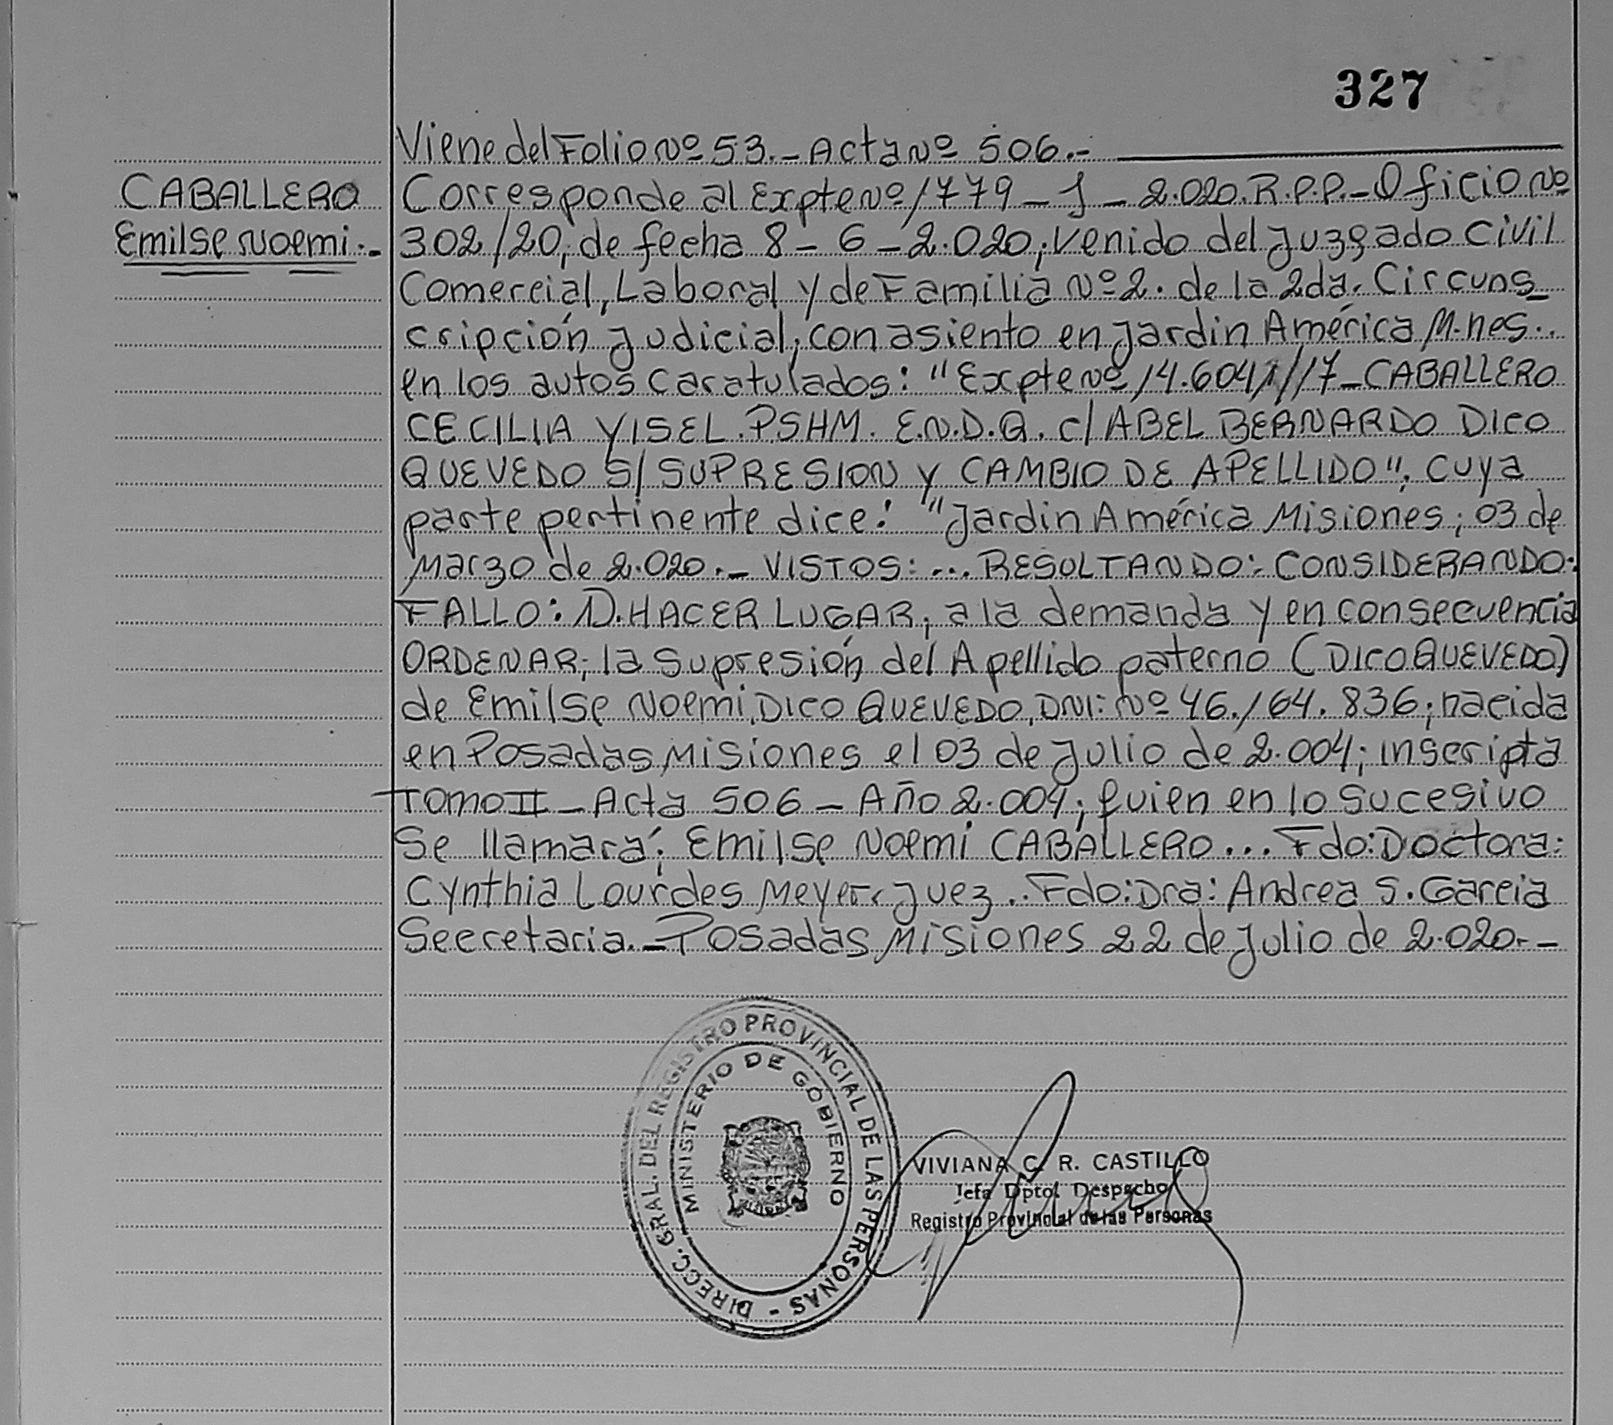 327
Viene del Folio Nº 53.- Acta Nº 506.-
CABALLERO
Emilse Noemi.-
Corresponde al Expte Nº 1779 - J - 2.020. R.P.P.- Oficio Nº
302/20, de fecha 8 - 6 - 2.020, venido del Juzgado Civil
Comercial, Laboral y de Familia Nº 2. de la 2da. Circuns
cripción Judicial, con asiento en Jardin América M.nes..
en los autos caratulados: "Expte Nº 14.604 CABALLERO
CECILIA YISEL. PSHM. E.N.D.Q. c/ ABEL BERNARDO DICO
QUEVEDO S/ SUPRESION Y CAMBIO DE APELLIDO", cuya
parte pertinente dice: "Jardin América Misiones, 03 de
Marzo de 2.020.- VISTOS: ... RESULTANDO: CONSIDERANDO:
FALLO: 1). HACER LUGAR, a la demanda y en consecuencia
ORDENAR, la Supresión del Apellido paterno (DICO QUEVEDO)
de Emilse Noemi, DICO QUEVEDO, DNI: Nº 46.164.836, nacida
en Posadas Misiones el 03 de Julio de 2.004, inscripta
Tomo II - Acta 506 - Año 2.004, quien en lo sucesivo
Se llamará: Emilse Noemi CABALLERO... Fdo: Doctora:
Cynthia Lourdes Meyer. Juez.. Fdo: Dra: Andrea S. Garcia
Secretaria.- Posadas Misiones 22 de Julio de 2.020.-
DIRECC. GRAL. DEL REGISTRO PROVINCIAL DE LAS PERSONAS -
MINISTERIO DE GOBIERNO
VIVIANA C. R. CASTILLO
Jefa Dpto. Despacho
Registro Provincial de las Personas